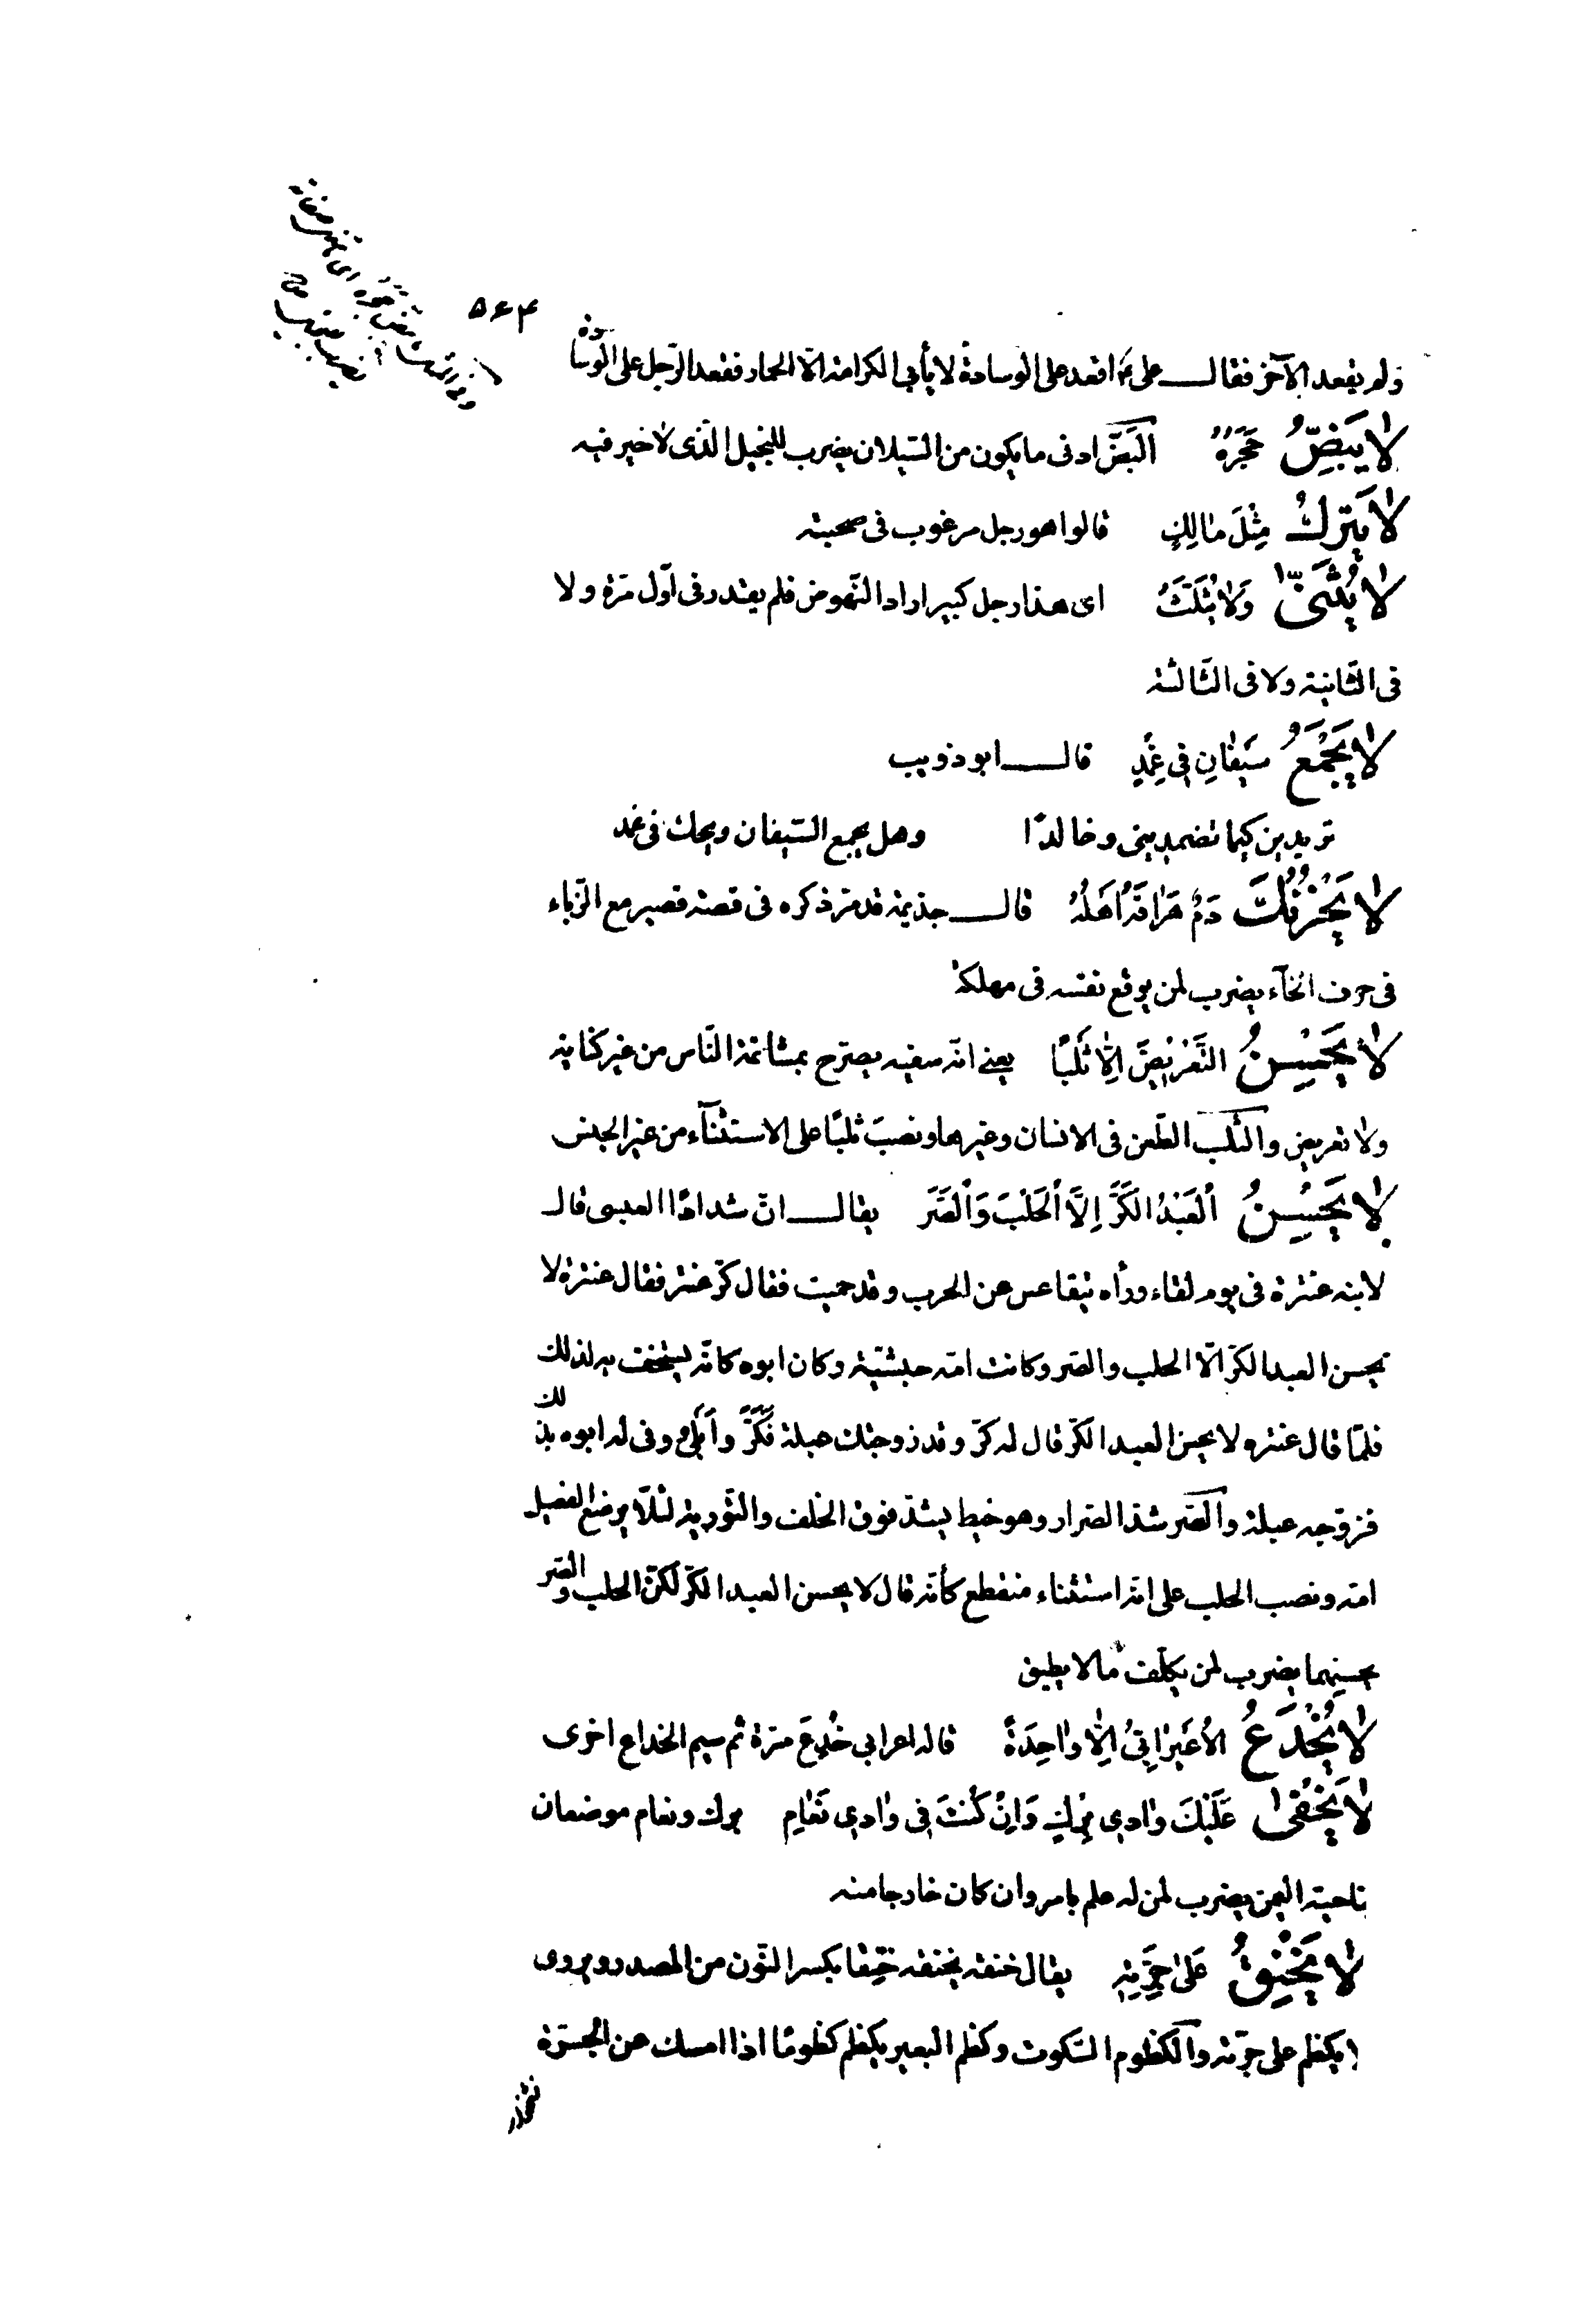 ۵۶۴
ولم يقعد الآخر فقال على ع اقعد على الوسادة لا يأبى الكرامة الّا الحمار فقعد الرّجل على الوسادة
لا يَبِضُّ حَجَرُهُ البَضّ ادنى ما يكون من السّيلان يضرب للبخيل الّذى لا خير فيه
لا يُتركُ مِثْلَ مالِكٍ قالوا هو رجل مرغوب فى صحبته
لا يُثَنّى وَلا يُثَلَّثُ اى هذا رجل كبير اراد النّهوض فلم يقدر فى اوّل مرّة ولا
فى الثّانية ولا فى الثّالثة
لا يُجْمَعُ سَيفانِ فى غِمْدٍ قال ابو ذويب
تريدين كيما تضمدينى وخالدًا وهل يجمع السّيفان ويحك فى غمد
لا يَحْزُنُكَ دَمٌ هَراقَهُ اَهلُهُ قال جذيمة قد مرّ ذكره فى قصة قصير مع الزّباء
فى حرف الخآء يضرب لمن يوقع نفسه فى مهلكة
لا يُحْسِنُ التَّعْرِيضَ اِلّا ثَلْبًا يعنى انّه سفيه يصرّح بمشاتمة النّاس من غير كناية
ولا تعريض والثّلب الطّعن فى الانسان وغيرها ونصب ثلبًا على الاستثنآء من غير الجنس
لا يُحْسِنُ اَلْعَبْدُ الكَرَّ اِلَّا اَلْحَلْبَ وَاَلْصَّرَ يقال انّ شدادًا العبسى قال
لابنه عنترة فى يوم لقاء ورأه يتقاعس عن الحرب وقد حميت فقال كرّ عنتر فقال عنترة لا
يحسن العبد الكرّ الّا الحلب والصر وكانت امّه حبشيّة وكان ابوه كانّه يستخف به لذلك
فلمّا قال عنتره لا يحسن العبد الكرّ قال له كرّ وقد زوجتك عبلة فَكَرَّ وأبلى ووفى له ابوه بذلك
فزوّجه عبلة والصّر شدّ الصّرار وهو خيط يشدّ فوق الخلف والتّودية لئلّا يرضع الفصيل
امّه ونصب الحلب على انّه استثناء منقطع كأنّه قال لا يحسن العبد الكرّ لكنّ الحلب والصّر
يحسنهما يضرب لمن يكلّف ما لا يطيق
لا يُخْدَعُ الاَعْرابِىُّ اِلّا واحِدَةً قاله اعرابى خُدِعَ مرّة ثم سيم الخداع اخرى
لا يَخْفى عَلَيْكَ وادى بِرْكٍ وَاِنْ كُنْتَ فى وادى نَعامٍ برك ونعام موضعان
بناحية اليمن يضرب لمن له علم بامر وان كان خارجا منه
لا يَخْنِقُ عَلى جِرَّتِهِ يقال خنقه يخنقه خَنِقا بكسر النّون من المصدر ويروى
لا يكظم على جرّته والكظوم السّكوت وكظم البعير يكظم كظومًا اذا امسك عن الجرّة